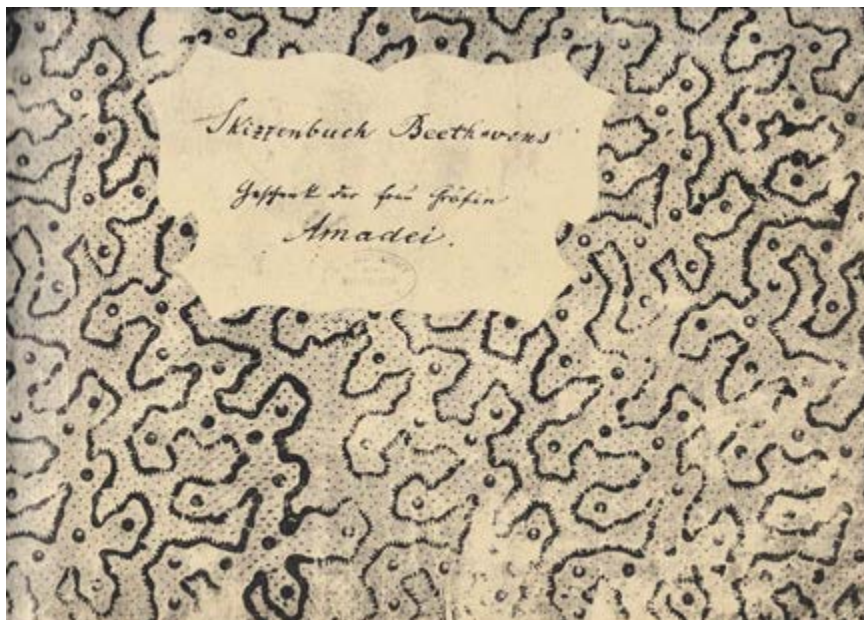 Skizzenbuch Beethovens
Geschenk der Frau Gräfin
Amadei.